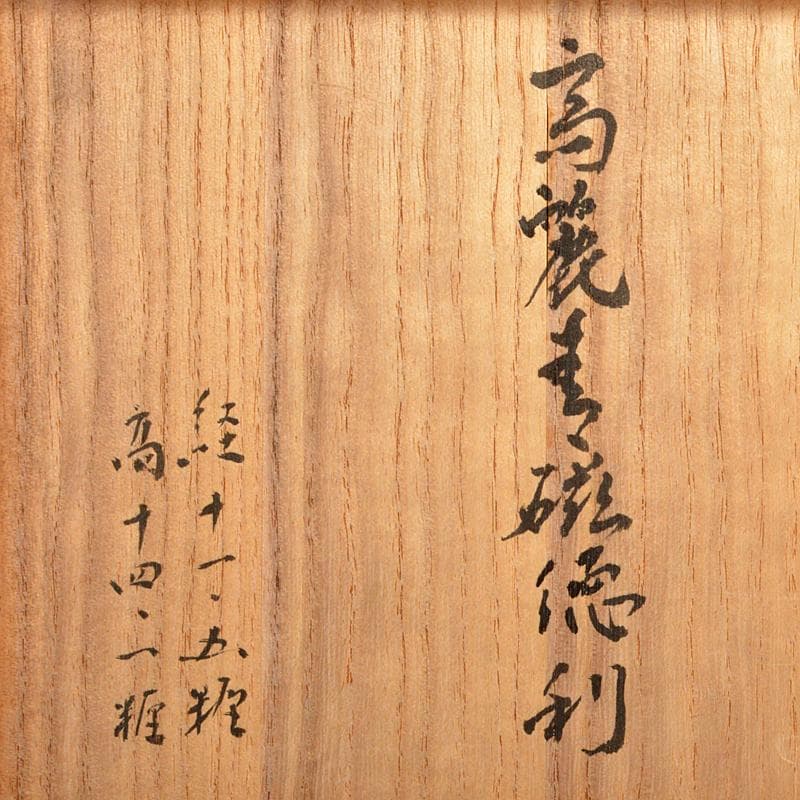 高麗青磁徳利
経十一、五糎
高十四、二糎